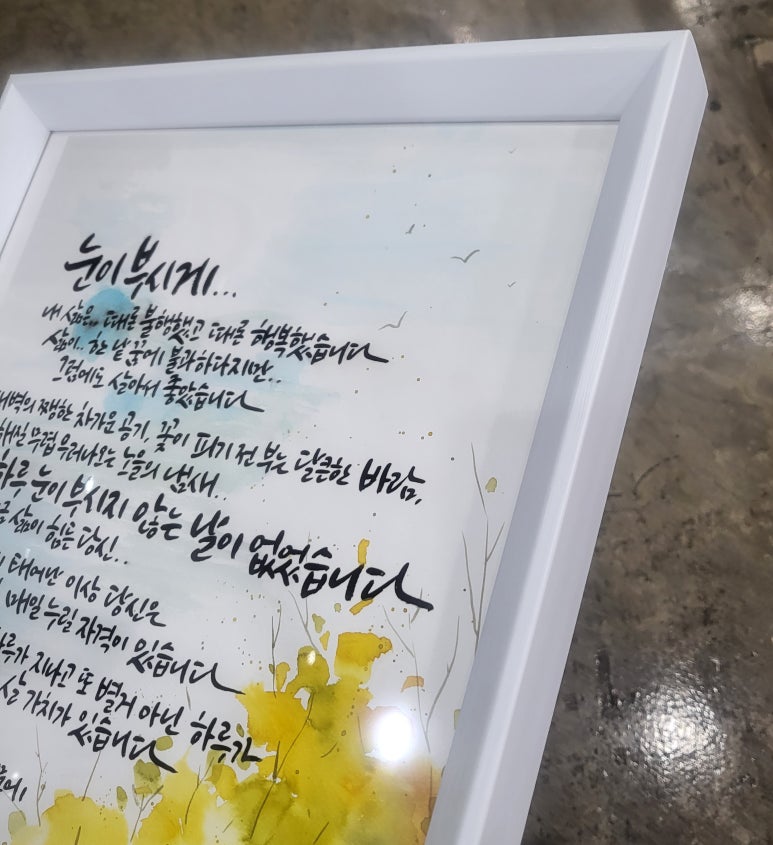 눈이 부시게...
내 삶은.. 때론 불행했고 때론 행복했습니다
삶이.. 한 낱 꿈에 불과하다지만..
그럼에도 살아서 좋았습니다
새벽의 쨍한 차가운 공기, 꽃이 피기 전 부는 달큰한 바람,
해질 무렵 우러나오는 노을의 냄새..
하루 눈이 부시지 않은 날이 없었습니다
지금 삶이 힘든 당신..
태어난 이상 당신은
매일 누릴 자격이 있습니다
하루가 지나고 또 별거 아닌 하루가
살 가치가 있습니다